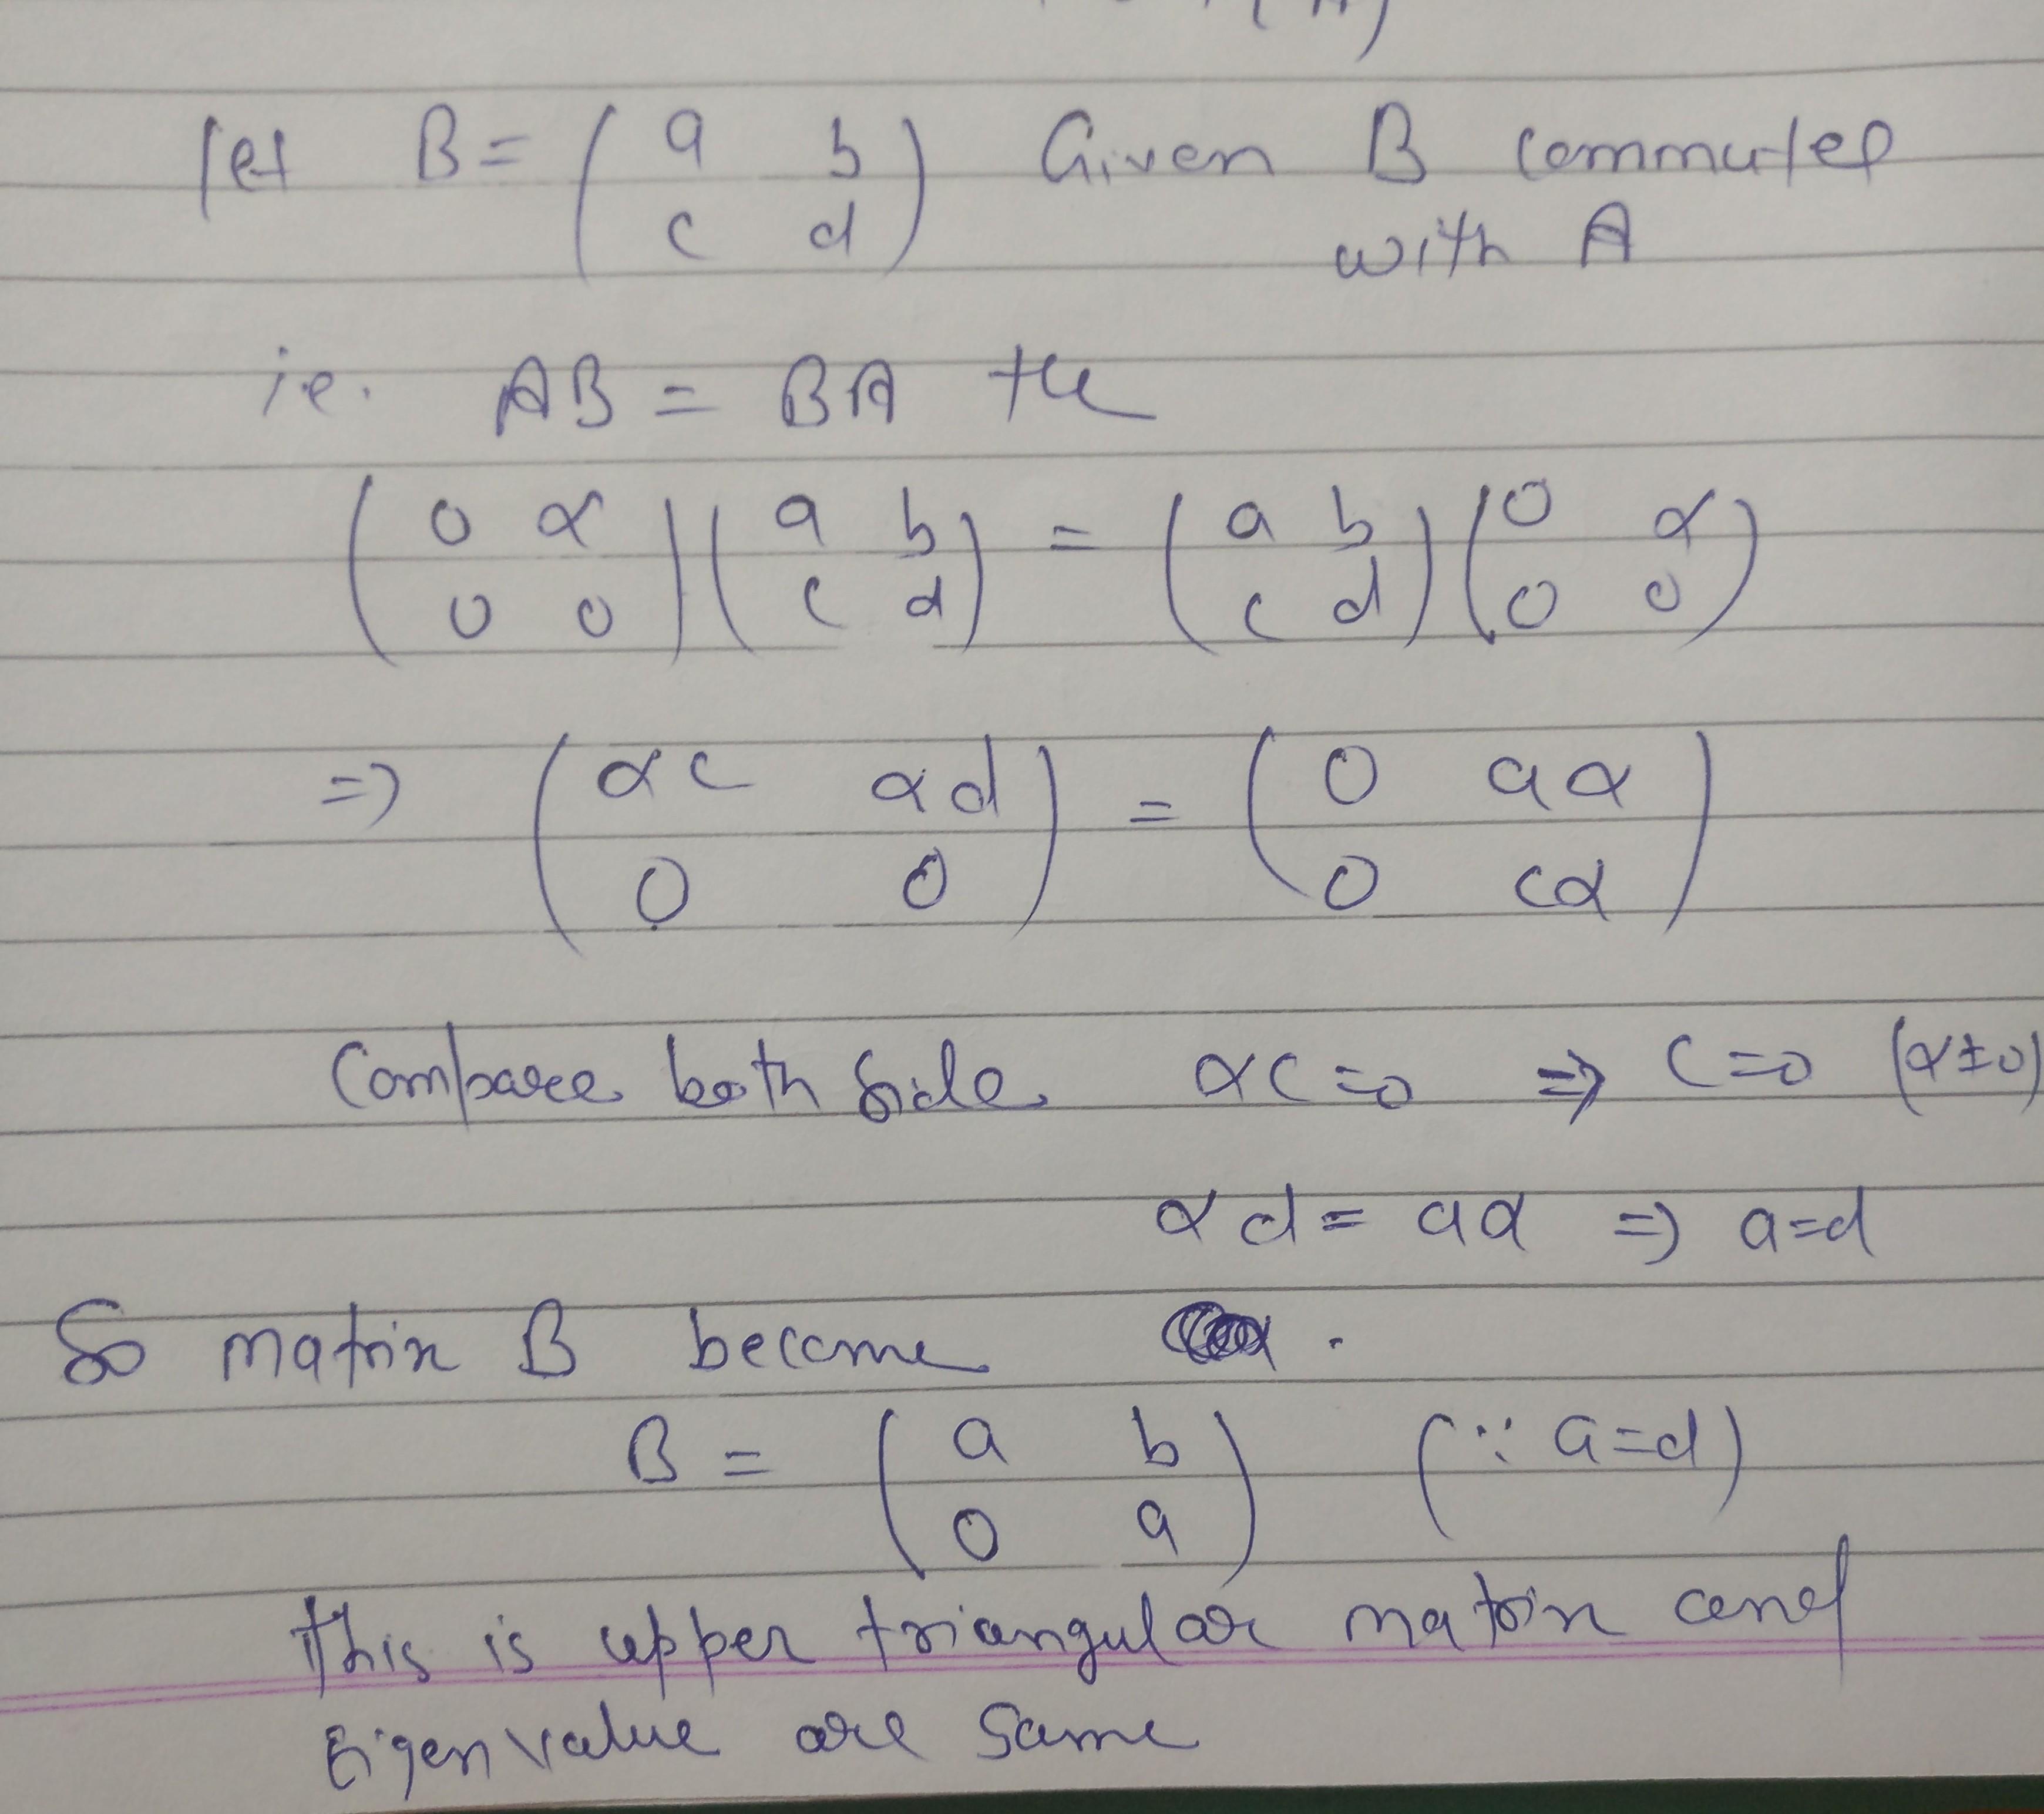 let B = ( a b ) Given B commutes
( c d ) with A
i.e. AB = BA
( 0 α ) ( a b ) = ( a b ) ( 0 α )
( 0 0 ) ( c d ) ( c d ) ( 0 0 )
⇒ ( αc αd ) = ( 0 aα )
( 0 0 ) ( 0 cα )
Compare both side αc=0 ⇒ c=0 (α≠0)
αd = aα ⇒ a=d
So matrix B become .
B = ( a b ) (∵ a=d)
( 0 a )
this is upper triangular matrix and
Eigen value are same